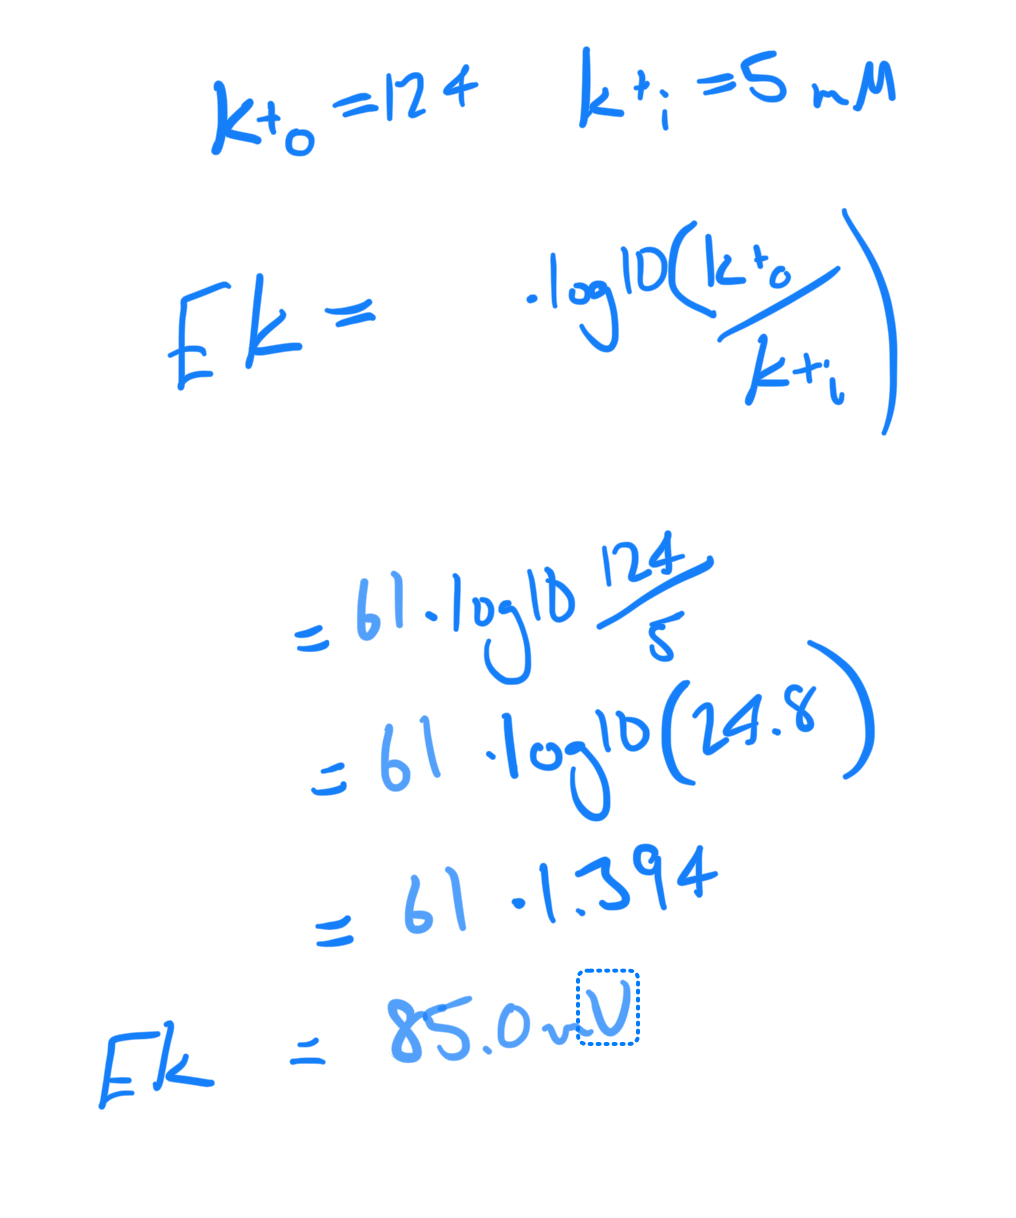 k+o = 124 k+i = 5 mM
Ek = · log10 (k+o / k+i)
= 61 · log10 124 / 5
= 61 · log10 (24.8)
= 61 · 1.394
Ek = 85.0 mV